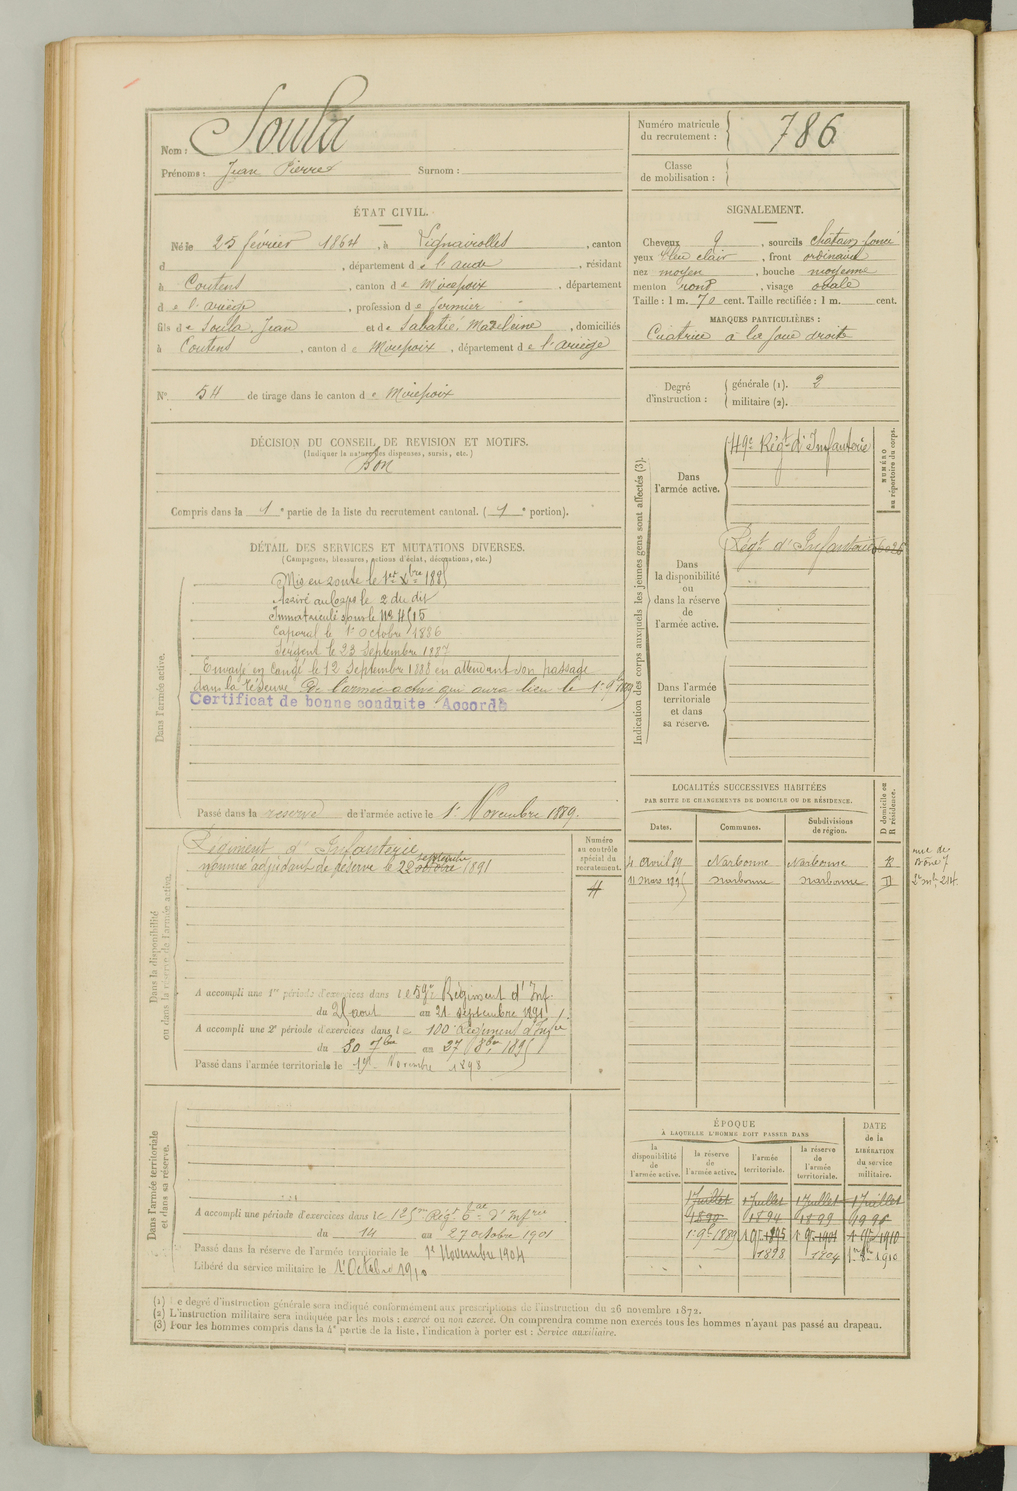 Nom : Soula
Prénoms : Jean Pierre Surnom :
Numéro matricule du recrutement : 786
Classe de mobilisation :
ÉTAT CIVIL.
Né le 25 février 1864, à , canton
d , département de l'aude , résidant
à Coutens , canton de Mirepoix , département
de l'ariège , profession de fermier
fils de Soula, Jean et de Sabatié, Madeleine , domiciliés
à Coutens , canton de Mirepoix , département de l'ariège
N° 54 de tirage dans le canton de Mirepoix
SIGNALEMENT.
Cheveux , sourcils chatain foncé
yeux bleu clair , front ordinaire
nez moyen , bouche moyenne
menton rond , visage ovale
Taille : 1 m. 70 cent. Taille rectifiée : 1 m. cent.
MARQUES PARTICULIÈRES :
Cicatrice à la joue droite
Degré d'instruction : générale (1). 2
militaire (2).
DÉCISION DU CONSEIL DE REVISION ET MOTIFS.
(Indiquer la nature des dispenses, sursis, etc.)
Bon
Compris dans la 1e partie de la liste du recrutement cantonal. ( 1e portion).
DÉTAIL DES SERVICES ET MUTATIONS DIVERSES.
(Campagnes, blessures, actions d'éclat, décorations, etc.)
Dans l'armée active.
Mis en route le 1er Xbre 1885
Arrivé au corps le 2 du dit
Immatriculé sous le N° 4515
Caporal le 1er Octobre 1886
Sergent le 23 Septembre 1887
Envoyé en Congé le 12 Septembre 1888 en attendant son passage
dans la réserve de l'armée active qui aura lieu le 1er 9bre 1889
Certificat de bonne conduite Accordé
Passé dans la reserve de l'armée active le 1er Novembre 1889.
Indication des corps auxquels les jeunes gens sont affectés (3).
NUMÉRO au répertoire du corps.
Dans l'armée active.
Régt d'Infanterie
Dans la disponibilité ou dans la réserve de l'armée active.
Régt d'Infanterie
Dans l'armée territoriale et dans sa réserve.
LOCALITÉS SUCCESSIVES HABITÉES
PAR SUITE DE CHANGEMENTS DE DOMICILE OU DE RÉSIDENCE.
Dates. Communes. Subdivisions de région. D domicile ou R résidence.
4 avril 89 Narbonne Narbonne R
11 mars 1895 Narbonne Narbonne D
Dans la disponibilité ou dans la réserve de l'armée active.
Numéro au contrôle spécial du recrutement.
Régiment d'Infanterie
septembre
nommé adjudant de réserve le 22 octobre 1891
A accompli une 1re période d'exercices dans le 59e Régiment d'Inf.
du 25 aout au 21 septembre 1891
A accompli une 2e période d'exercices dans le 100e Régiment d'Infie
du 30 7bre au 27 8bre 1895
Passé dans l'armée territoriale le 1er Novembre 1898
Dans l'armée territoriale et dans sa réserve.
A accompli une période d'exercices dans le 125me Régt d'Infrie
du 14 au 27 octobre 1901
Passé dans la réserve de l'armée territoriale le 1er Novembre 1904
Libéré du service militaire le 1er Octobre 1910
ÉPOQUE
A LAQUELLE L'HOMME DOIT PASSER DANS
DATE de la LIBÉRATION du service militaire.
la disponibilité de l'armée active. la réserve de l'armée active. l'armée territoriale. la réserve de l'armée territoriale.
1 Juillet 1 Juillet 1 Juillet 1 Juillet
1890 1894 1899
1er 9bre 1889 1er 9bre 1895 1er 9bre 1901 1er 9bre 1910
1898 1904 1er 8bre 1910
(1) Le degré d'instruction générale sera indiqué conformément aux prescriptions de l'instruction du 26 novembre 1872.
(2) L'instruction militaire sera indiquée par les mots : exercé ou non exercé. On comprendra comme non exercés tous les hommes n'ayant pas passé au drapeau.
(3) Pour les hommes compris dans la 4e partie de la liste, l'indication à porter est : Service auxiliaire.